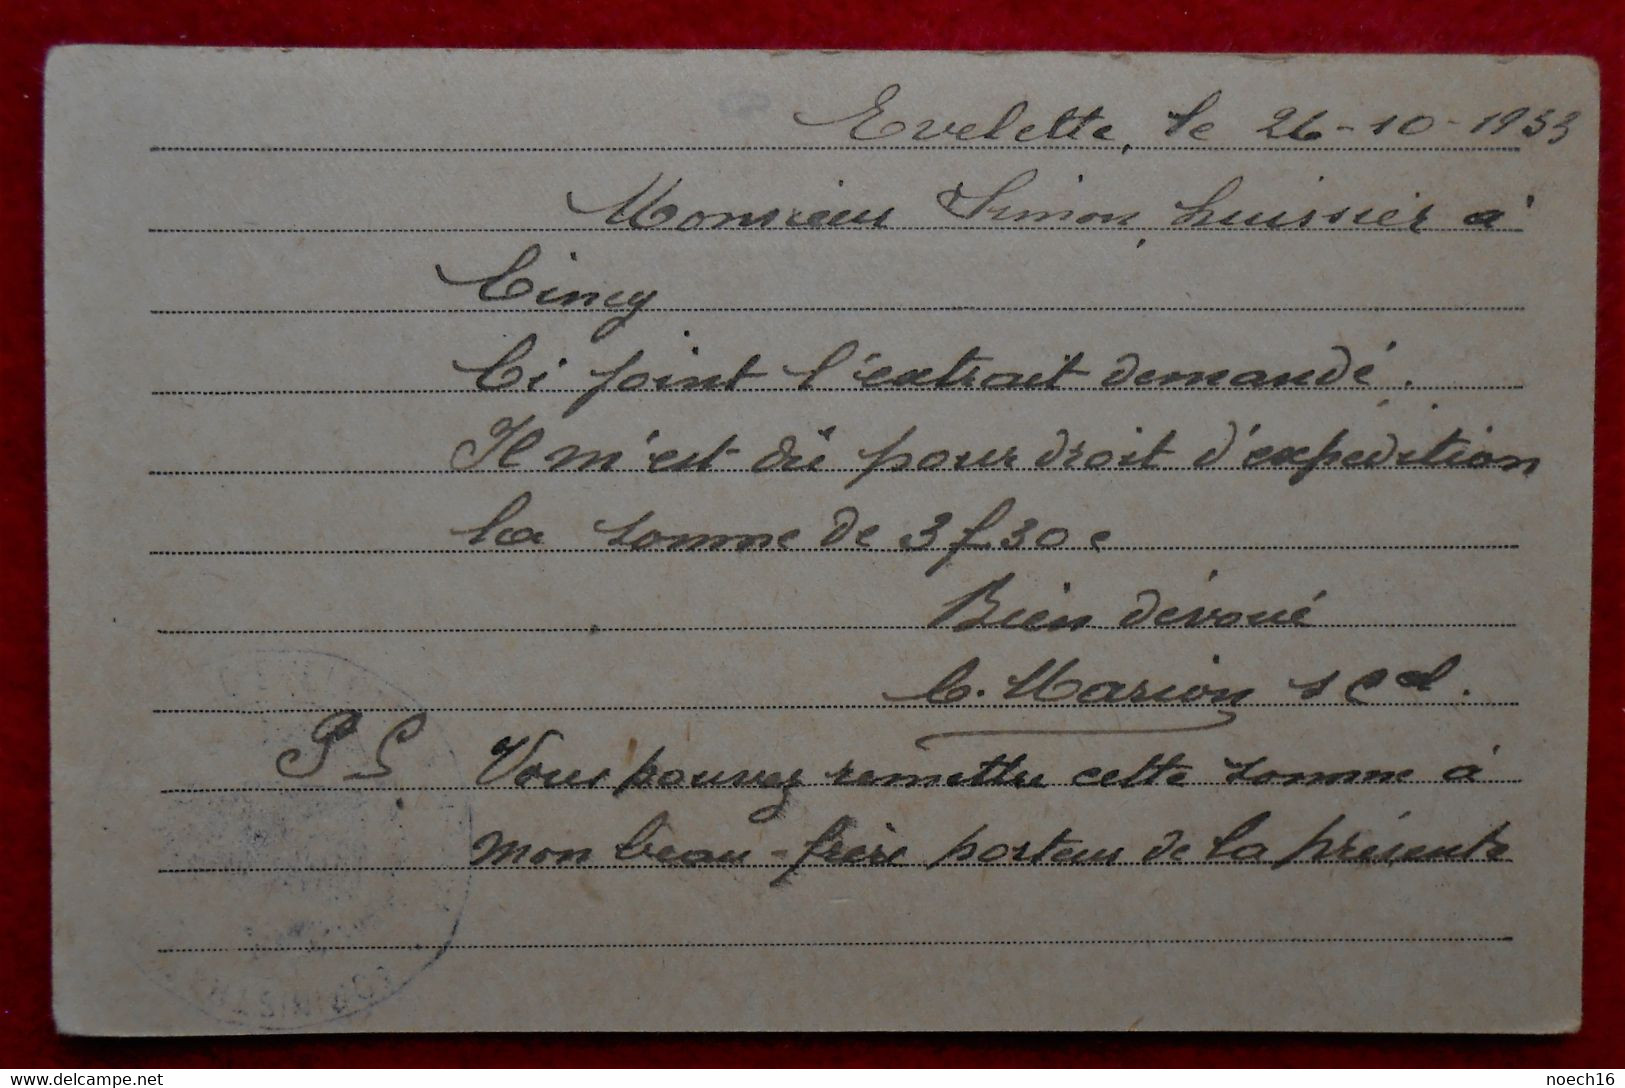 Evelette, le 26-10-1933
Monsieur Simon, huissier à
Ciney
Ci joint l'extrait demandé.
Il m'est dû pour droit d'expédition
la somme de 3 f 30 c
Bien dévoué
C. Marion
PS. Vous pouvez remettre cette somme à
mon beau-frère porteur de la présente
noech16